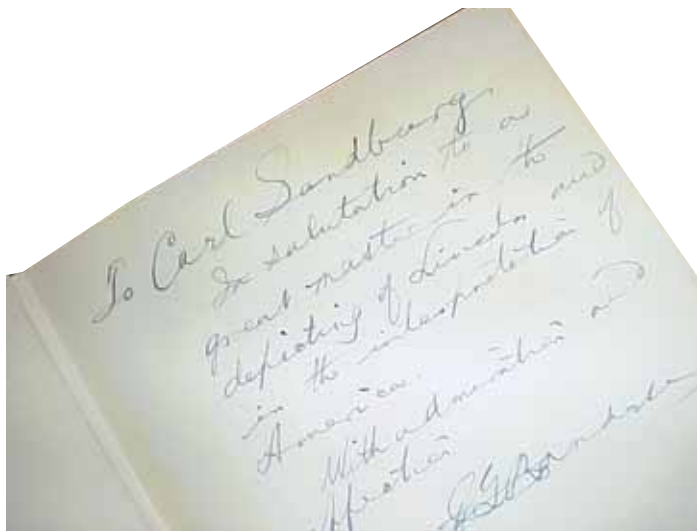 To Carl Sandburg
In salutation to a
great master in the
depicting of Lincoln and
in the interpretation of
America.
With admiration and
affection